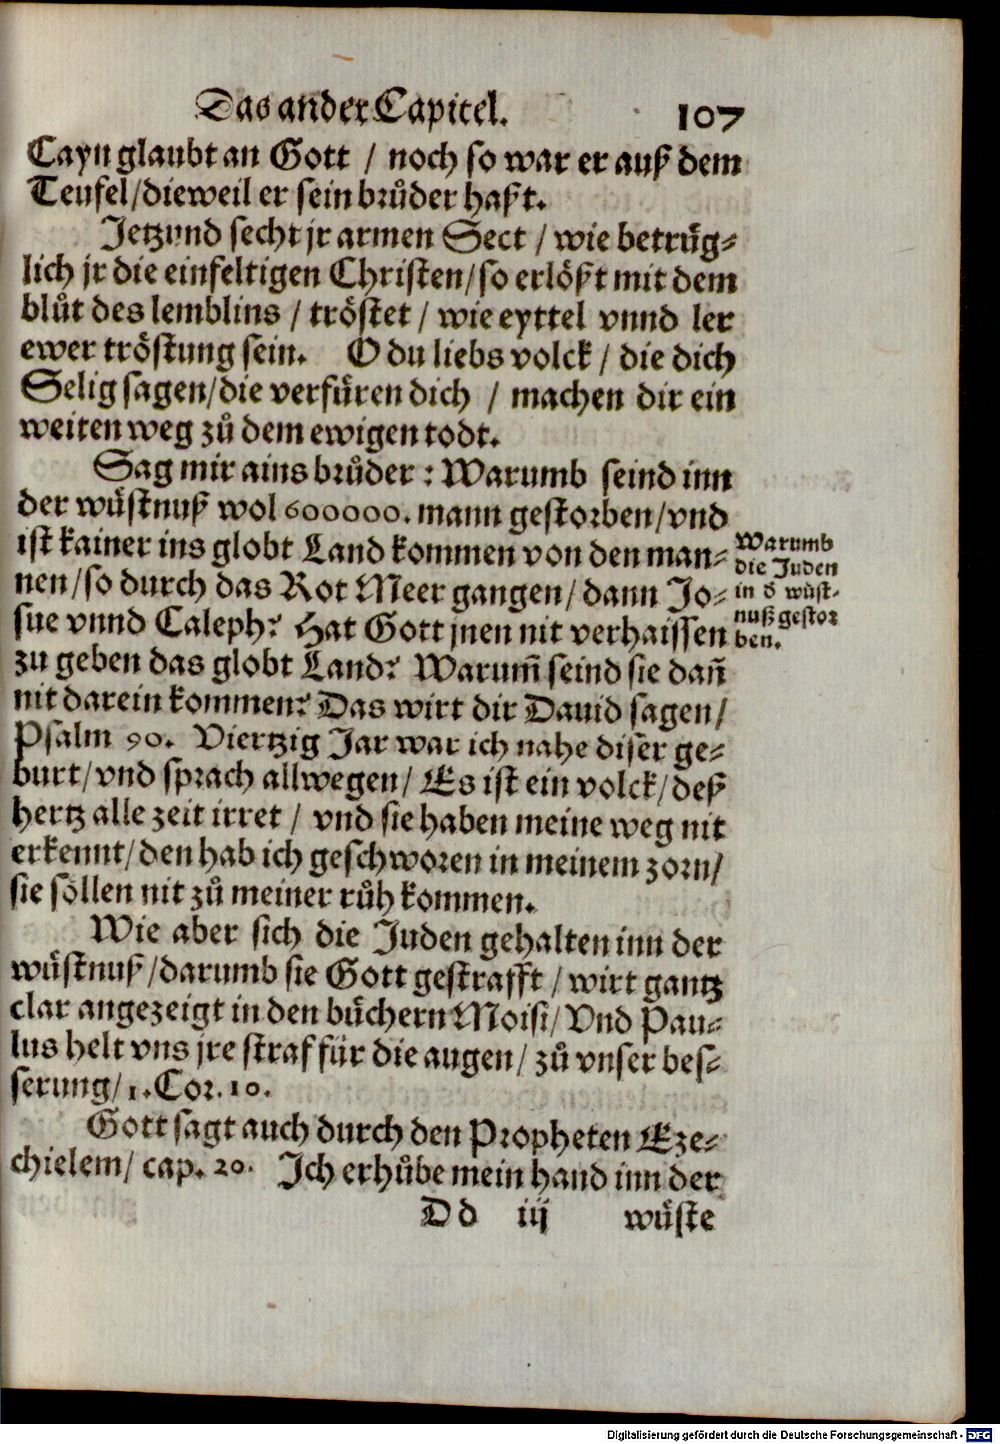 Das ander Capitel. 107
Cayn glaubt an Gott / noch so war er auß dem
Teufel/dieweil er sein brůder haßt.
Jetzund secht jr armen Sect / wie betrüg-
lich jr die einfeltigen Christen/so erlößt mit dem
blůt des lemblins / tröstet / wie eyttel vnnd ler
ewer tröstung sein. O du liebs volck / die dich
Selig sagen/die verfüren dich / machen dir ein
weiten weg zů dem ewigen todt.
Sag mir ains brůder: Warumb seind inn
der wüstnuß wol 600000. mann gestorben/vnd
ist kainer ins globt Land kommen von den man-
nen/so durch das Rot Meer gangen/dann Jo-
sue vnnd Caleph? Hat Gott jnen nit verhaissen
zu geben das globt Land? Warum̃ seind sie dañ
nit darein kommen? Das wirt dir Dauid sagen/
Psalm 90. Viertzig Jar war ich nahe diser ge-
burt/vnd sprach allwegen/ Es ist ein volck/deß
hertz alle zeit irret / vnd sie haben meine weg nit
erkennt/den hab ich geschworen in meinem zorn/
sie söllen nit zů meiner růh kommen.
Warumb
die Juden
in d̕ wüst-
nuß gestor
ben.
Wie aber sich die Juden gehalten inn der
wüstnuß/darumb sie Gott gestrafft / wirt gantz
clar angezeigt in den büchern Moisi/ Vnd Pau-
lus helt vns jre straf für die augen/ zů vnser bes-
serung/1.Cor.10.
Gott sagt auch durch den Propheten Eze-
chielem/ cap. 20. Ich erhůbe mein hand inn der
Dd iij wüste
Digitalisierung gefördert durch die Deutsche Forschungsgemeinschaft - DFG